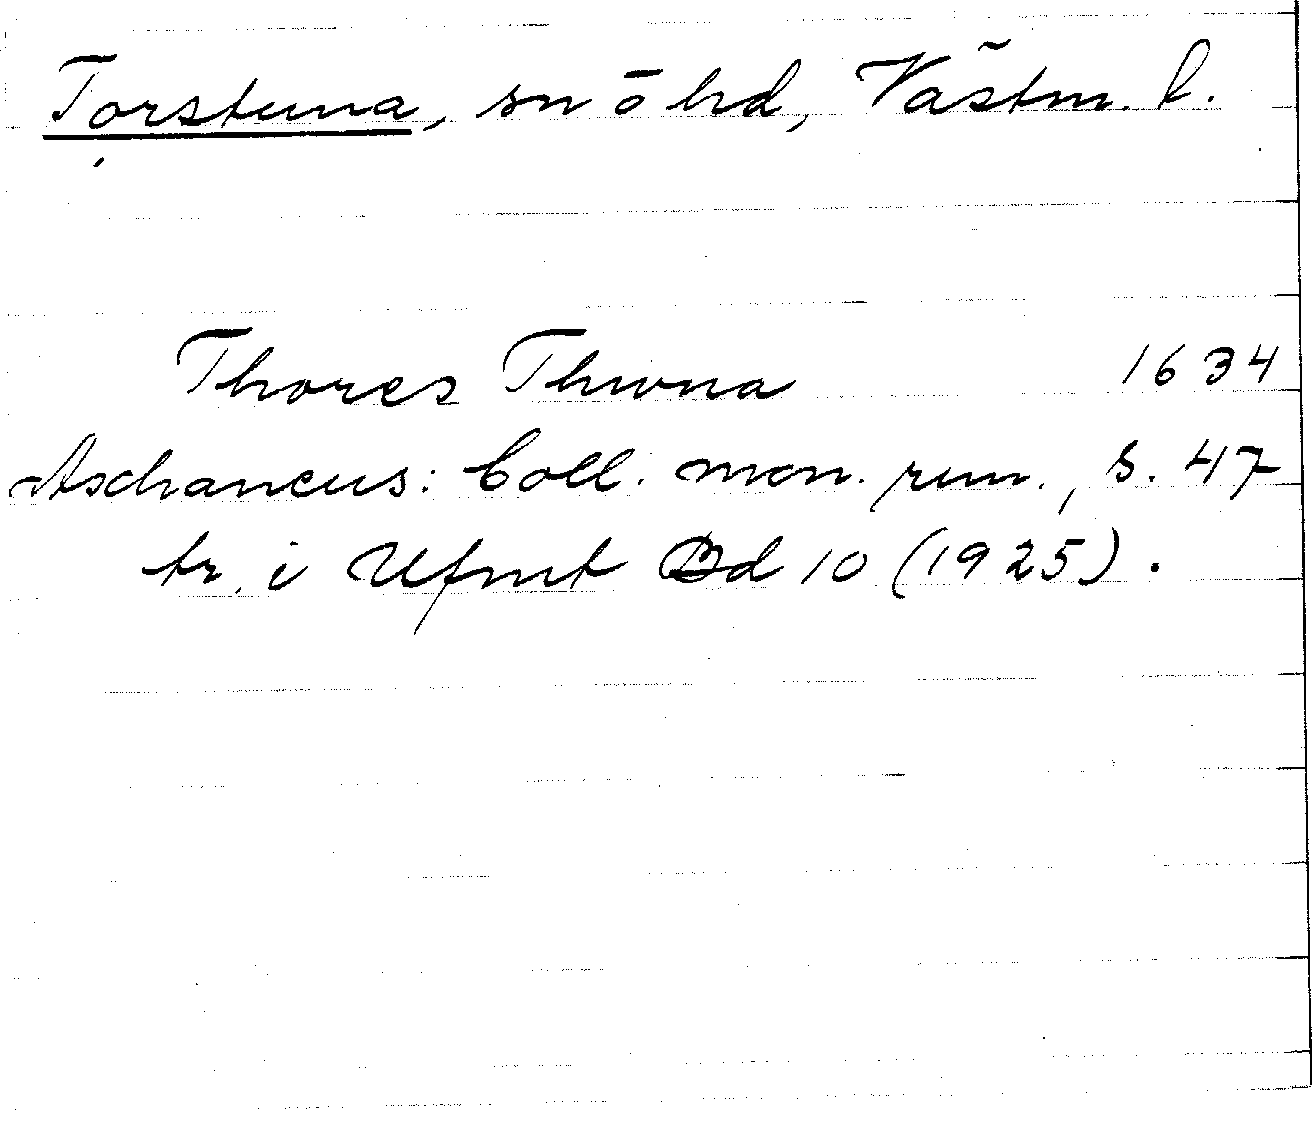 Torstuna, sn ō hd, Västm. l.
Thores Thwna 1634
Aschaneus: Coll. mon. run., s. 47
tr. i Ufmt Bd 10 (1925).